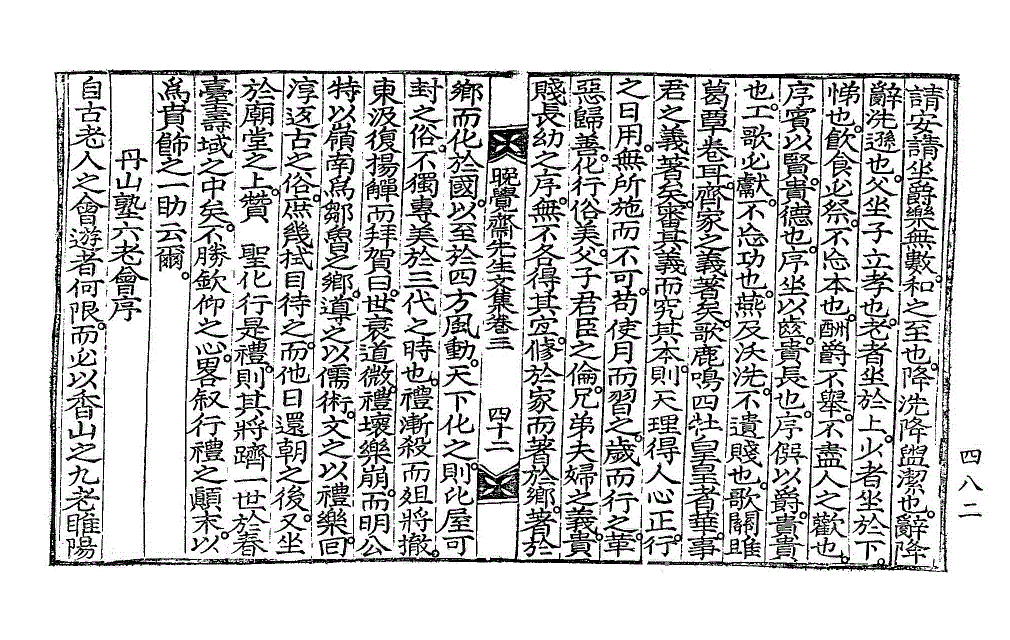 請安請坐爵樂無數和之至也降洗降盥潔也辭降
辭洗遜也父坐子立孝也老者坐於上少者坐於下
悌也飮食必祭不忘本也酬爵不舉不盡人之歡也
序賓以賢貴德也序坐以齒貴長也序僎以爵貴貴
也工歌必獻不忘功也燕及沃洗不遺賤也歌關雎
葛覃卷耳齊家之義著矣歌鹿鳴四牡皇皇者華事
君之義著矣審其義而究其本則天理得人心正行
之日用無所施而不可苟使月而習之歲而行之革
惡歸善化行俗美父子君臣之倫兄弟夫婦之義貴
賤長幼之序無不各得其宜修於家而著於鄕著於
晩覺齋先生文集卷三　四十二
鄕而化於國以至於四方風動天下化之則比屋可
封之俗不獨專美於三代之時也禮漸殺而俎將撤
東汲復揚觶而拜賀曰世衰道微禮壞樂崩而明公
特以嶺南爲鄒魯之鄕導之以儒術文之以禮樂回
淳返古之俗庶幾拭目待之而他日還朝之後又坐
於廟堂之上贊　聖化行是禮則其將躋一世於春
臺壽域之中矣不勝欽仰之心畧敍行禮之顚末以
爲賁飾之一助云爾
丹山塾六老會序
自古老人之會遊者何限而必以香山之九老睢陽
四八二